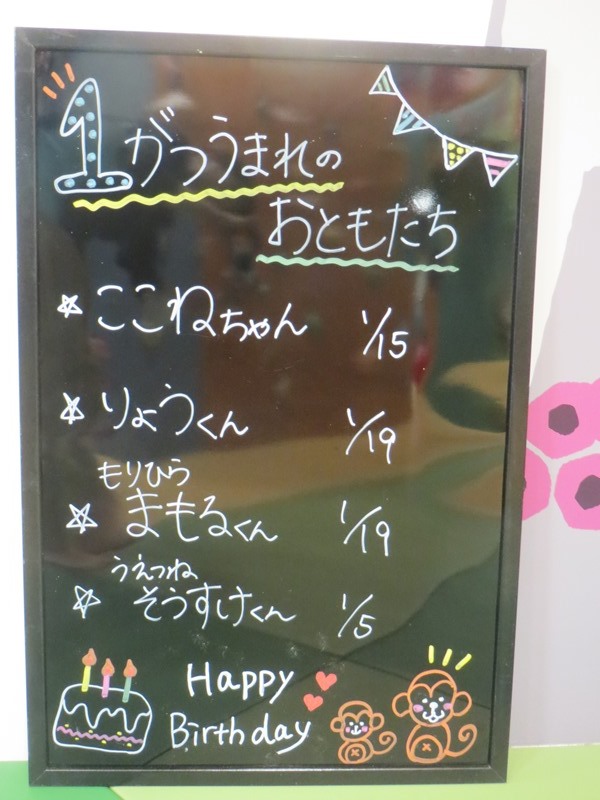 1がつうまれの
おともたち
☆ ここねちゃん 1/15
☆ りょうくん 1/19
もりひら
☆ まもるくん 1/19
うえつね
☆ そうすけくん 1/5
Happy
Birthday